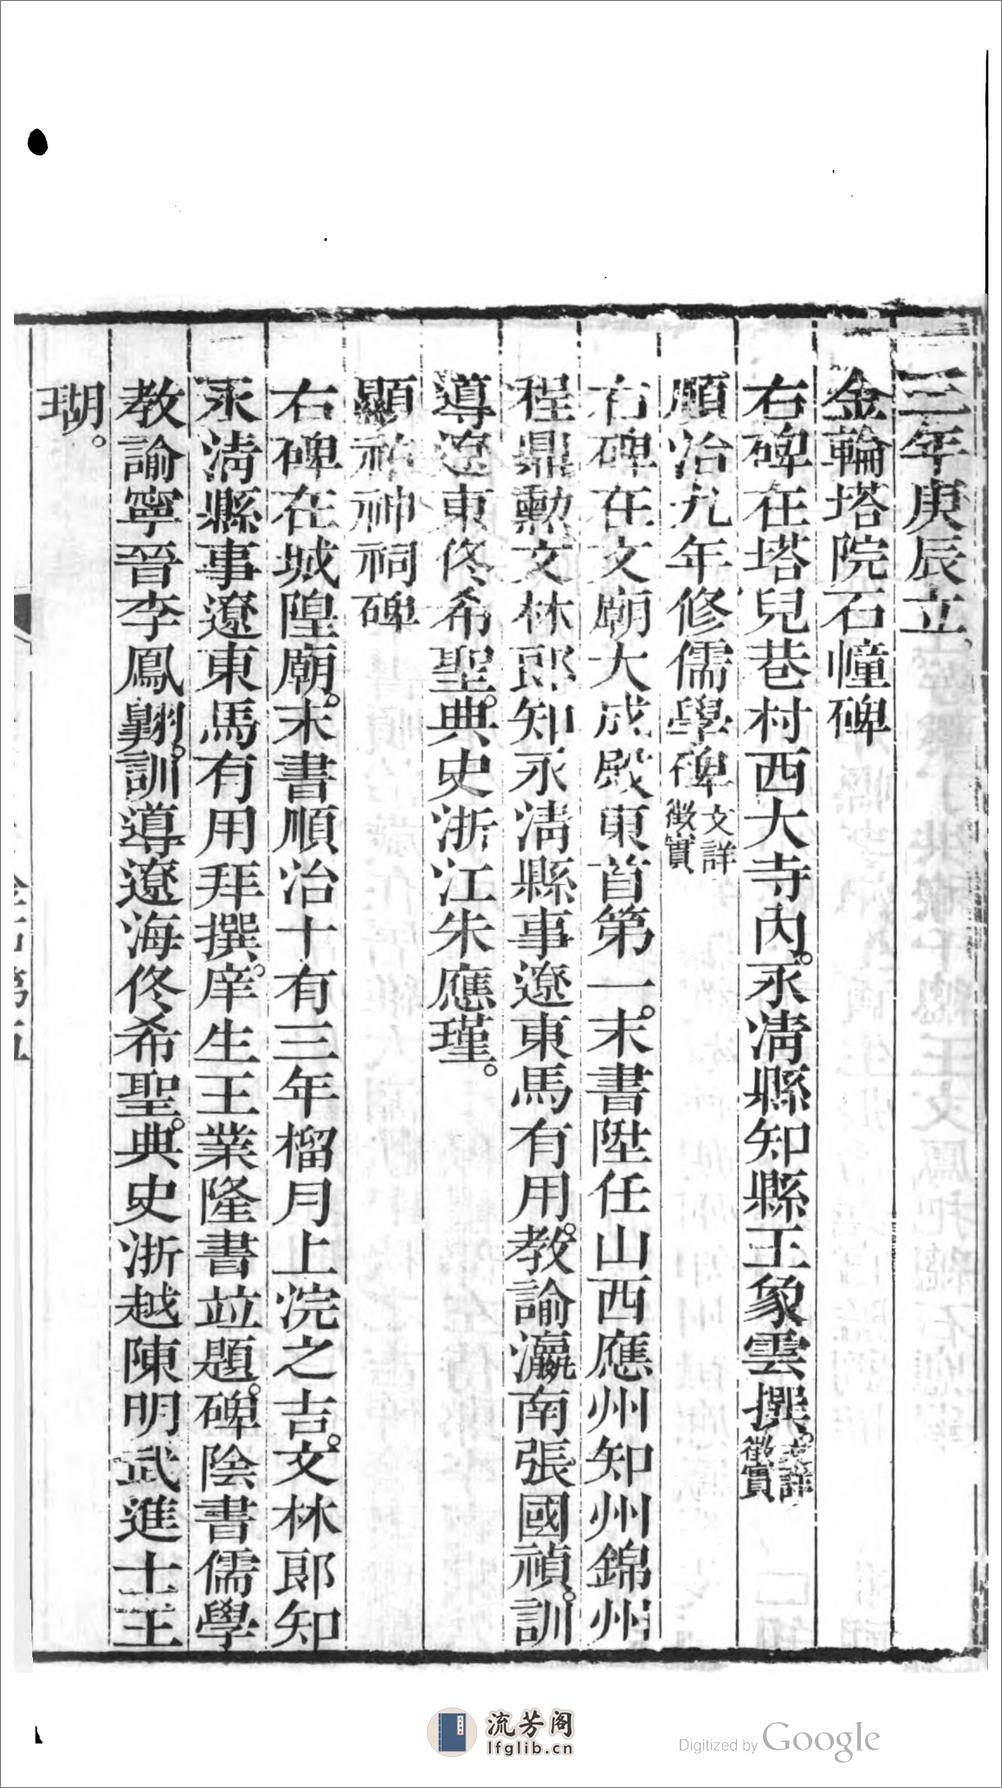 三年庚辰立。
金輪塔院石幢碑
右碑在塔兒巷村西大寺內。永淸縣知縣王象雲撰。文詳徵實
順治九年修儒學碑文詳徵實
右碑在文廟大成殿東首第一。末書陞任山西應州知州錦州
程鼎勲。文林郎知永淸縣事遼東馬有用。教諭瀛南張國禎。訓
導遼東佟希聖。典史浙江朱應瑾。
顯祐神祠碑
右碑在城隍廟。末書順治十有三年榴月上浣之吉。文林郎知
永淸縣事遼東馬有用拜撰。庠生王業隆書竝題。碑陰書儒學
教諭寧晉李鳳翺。訓導遼海佟希聖。典史浙越陳明武進士王
瑚。
流芳阁
lfglib.cn
Digitized by Google